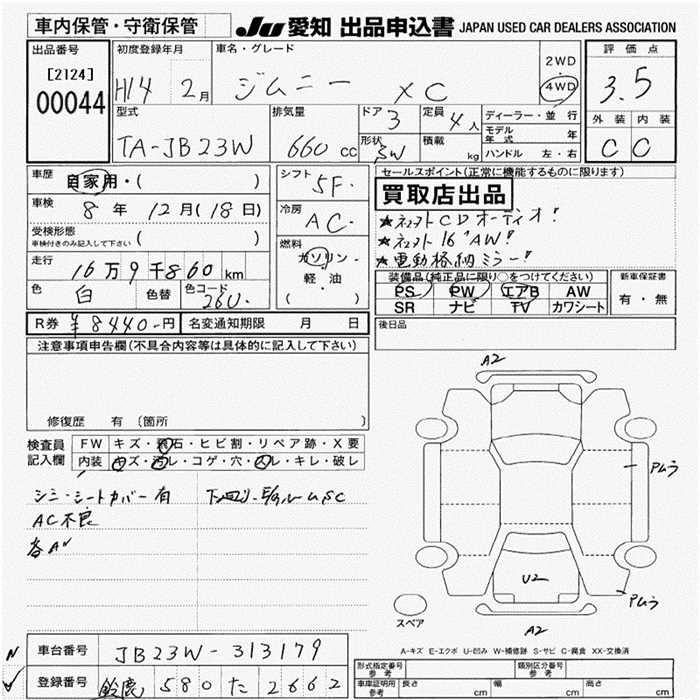 車内保管・守衛保管 JU 愛知 出品申込書 JAPAN USED CAR DEALERS ASSOCIATION
出品番号 [2124] 00044
初度登録年月 H14 2月
車名・グレード ジムニー XC
2WD 4WD
評価点 3.5
型式 TA-JB23W
排気量 660cc
ドア 3 定員 4人
形状 SW 積載 kg
ディーラー・並行
モデル年式 年
ハンドル 左・右
外装 内装
C C
車歴 自家用・( )
車検 8年 12月(18日)
受検形態 ( )
車検付きのみ記入して下さい
走行 16万9千860km
色 白 色替 色コード 26U
シフト 5F
冷房 AC
燃料 ガソリン・軽・油 ( )
セールスポイント(正常に機能するものに限ります)
買取店出品
★ネット CDオーディオ!
★ネット 16"AW!
★電動格納ミラー!
装備品(純正品に限り○をつけてください)
PS PW エアB AW
SR ナビ TV カワシート
新車保証書
有・無
後日品
R券 ¥8440-円 名変通知期限 月 日
注意事項申告欄(不具合内容等は具体的に記入して下さい)
修復歴 有 〔箇所 〕
検査員記入欄
FW キズ・飛石・ヒビ割・リペア跡・X要
内装 キズ・汚レ・コゲ・穴・スレ・キレ・破レ
シミ・シートカバー有
AC不良
各A"
A2
Pムラ
U2
Pムラ
A2
スペア
A-キズ E-エクボ U-凹み W-補修跡 S-サビ C-腐食 XX-交換済
車台番号 JB23W-313179
登録番号 鈴鹿 580 た 2662
形式指定番号 参考
類別区分番号 参考
車庫証明用 参考 長さ cm 幅 cm 高さ cm